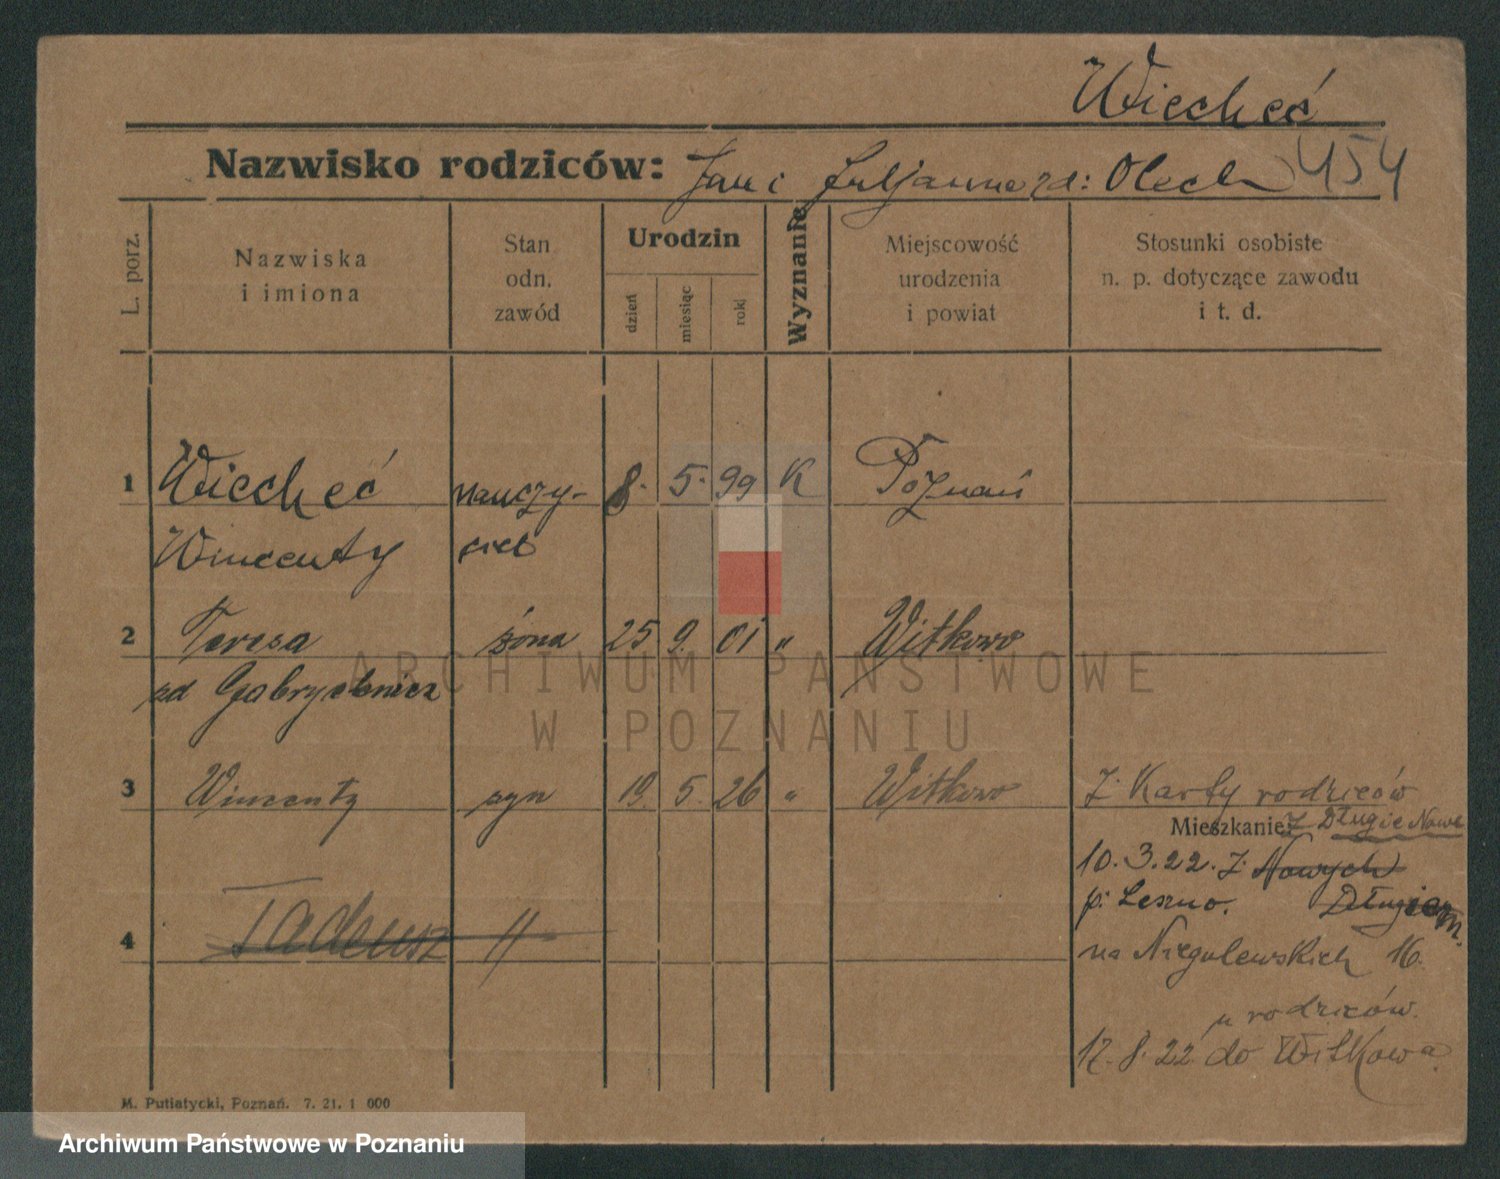 Wiecheć
Nazwisko rodziców: Jan i Juljanna zd: Olech 454
L. porz.
Nazwiska
i imiona
Stan
odn.
zawód
Urodzin
dzień
miesiąc
rok
Wyznanie
Miejscowość
urodzenia
i powiat
Stosunki osobiste
n. p. dotyczące zawodu
i t. d.
1 Wiecheć nauczy- 8. 5. 99 K Poznań
Wincenty ciel
2 Teresa żona 25 9. 01 " Witkowo
zd
3 Wincenty syn 19. 5. 26 " Witkowo Z Karty rodziców
Mieszkanie: Z Długie Nowe
10.3.22. z Nowych
p. Leszno. Długiem
4 Tadeusz "
na Niegolewskich 16.
u rodziców.
17.8.22 do Witkowa.
M. Putiatycki, Poznań. 7. 21. 1 000
ARCHIWUM PAŃSTWOWE
W POZNANIU
Archiwum Państwowe w Poznaniu